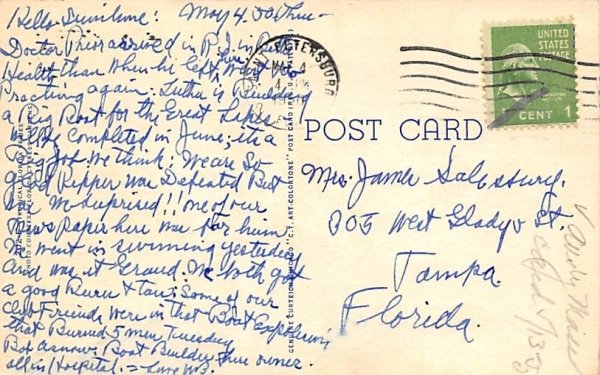 Hello Sunshine: May 4. 50 Three-
Doctor Pries arrived in P.I. in Better
Health than when he left here Went two
Practing again. Lutha is Building
a Big Boat for the Great Lakes
will Be Completed in June; its a
Big Job we think: We are So
glad Pepper was Defeated But
was We Surprised!! one of our
News Paper here was for him
We went in swimming yesterday
and was it Grand. We both got
a good Burn & Tan: Some of our
club Friends were in that Boat Explosion
that Burned 5 men Tuesday
Bob Asnow. Boat Builder there owner.
all in Hospital. = Love
ST. PETERSBURG
MAY 4
UNITED
STATES
POSTAGE
WASHINGTON
CENT 1
POST CARD
Mrs. James Salesbury.
305 West Gladys St.
Tampa
Florida.
GENUINE CURTEICH-CHICAGO "C.T. ART-COLORTONE" POST CARD (REG. U.S. PAT. OFF.)